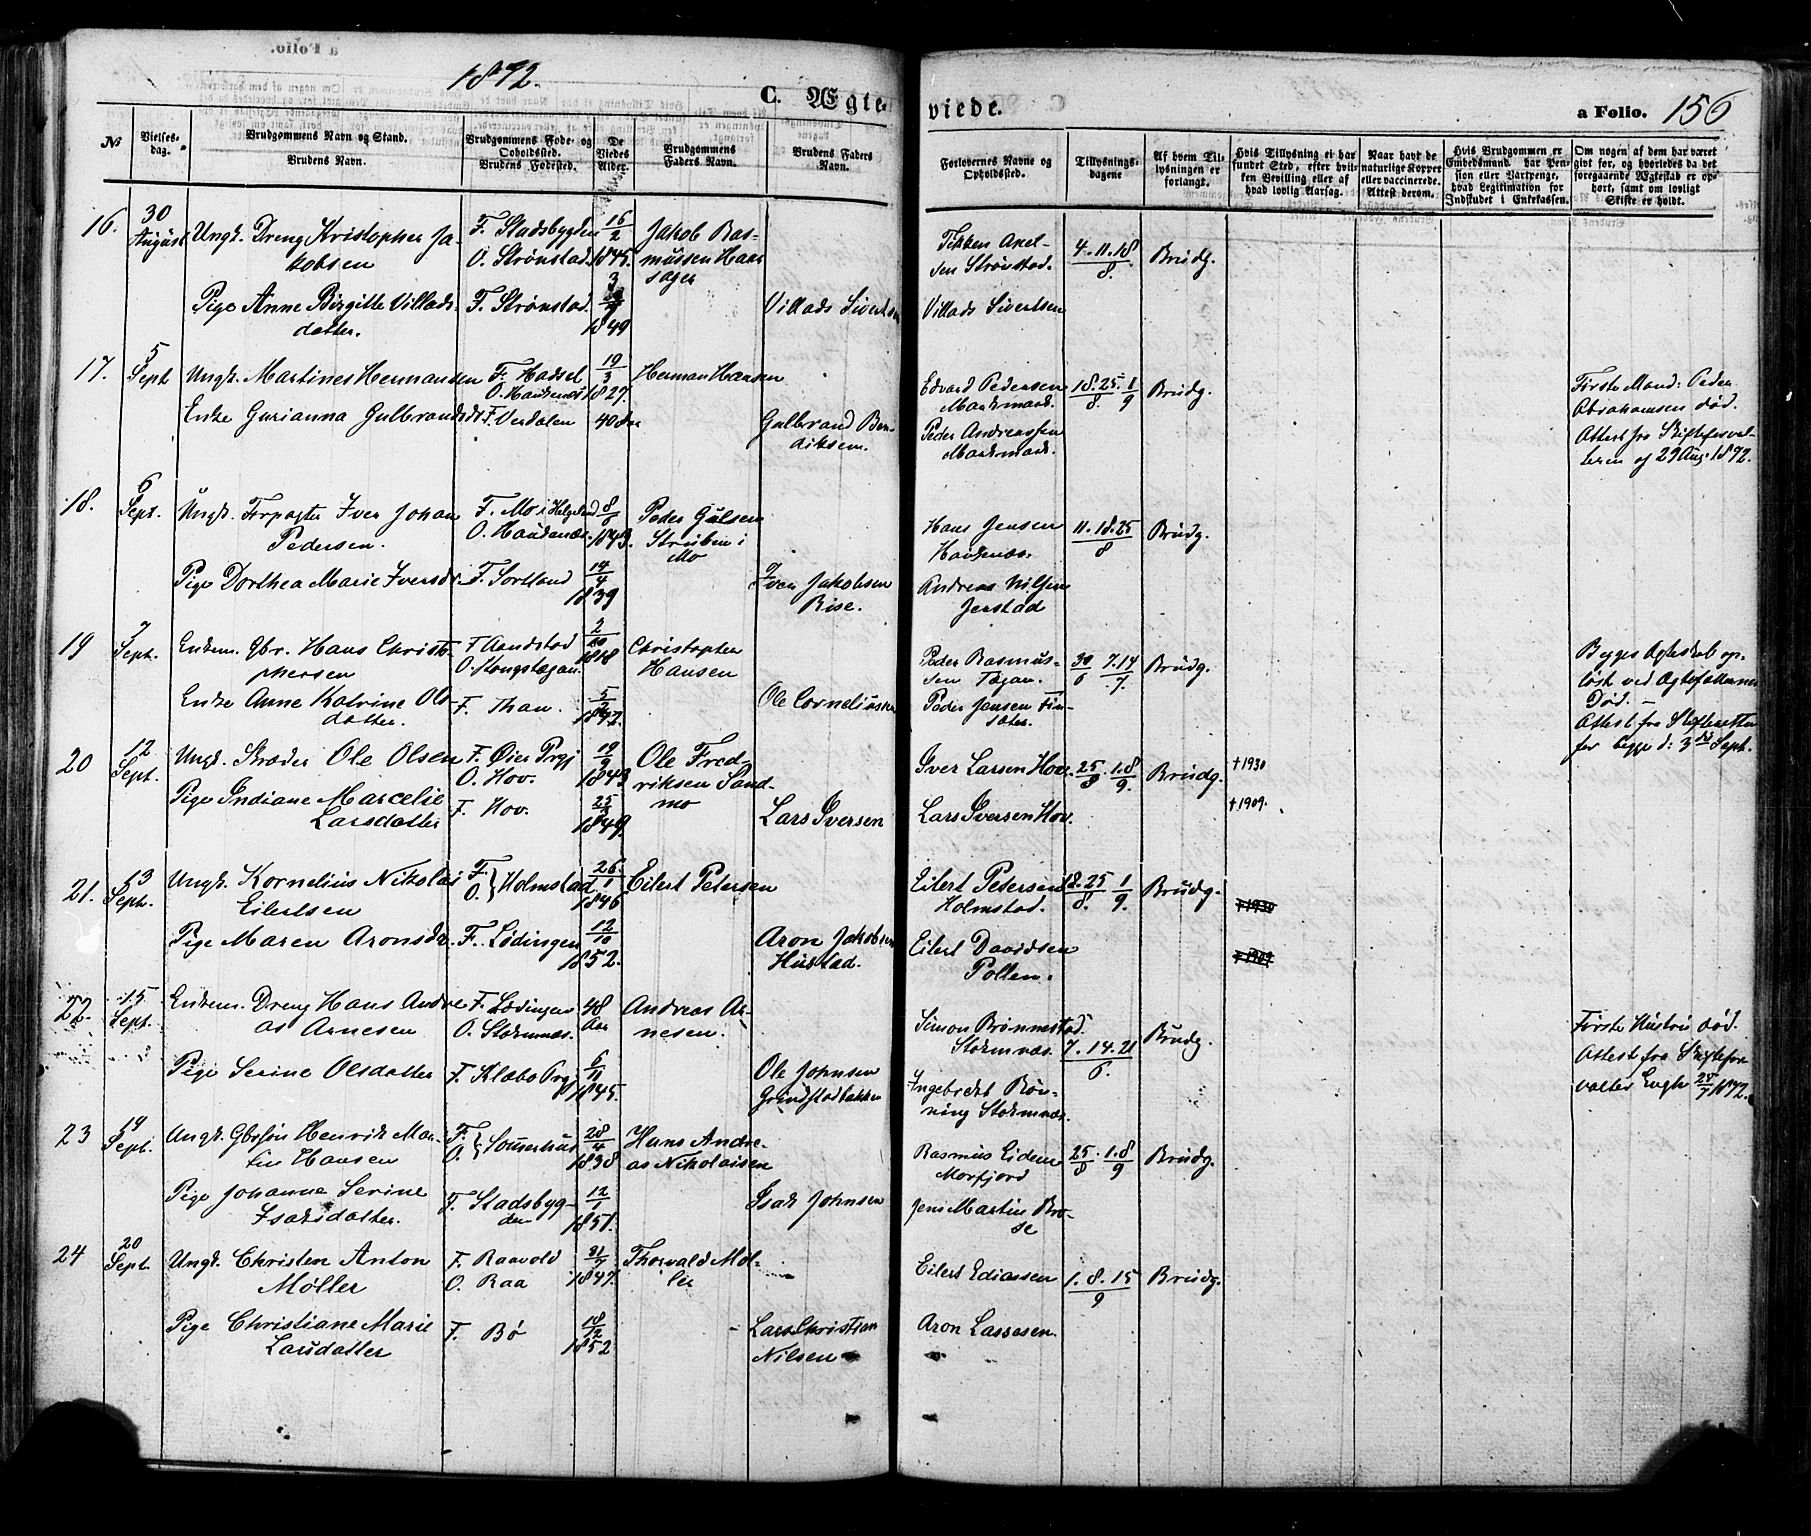 1872.
C. Ægteviede.
a Folio. 156
№
Vielses-dag.
Brudgommens Navn og Stand.
Brudens Navn.
Brudgommens Føde- og Opholdssted.
Brudens Fødested.
De Viedes Alder.
Brudgommens Faders Navn.
Brudens Faders Navn.
Forlovernes Navne og Opholdssted.
Tillysnings-dagene
Af hvem Tillysningen er forlangt.
Hvis Tillysning ei har fundet Sted, efter hvilken Bevilling eller af hvad lovlig Aarsag.
Naar havt de naturlige Kopper eller vaccinerede. Attest derom.
Hvis Brudgommen er Embedsmand, har Pension eller Vartpenge, hvad Legitimation for Indskudet i Enkekassen.
Om nogen af dem har været givt før, og hvorledes da det foregaaende Ægteskab er ophørt, samt om lovligt Skifte er holdt.
16. 30 August Ungk. Dreng Kristopher Jakobsen F. Stadsbygden O. Strønstad. 16/2 1845. Jakob Rasmussen Haarsager
Tikken Axelsen Strønstad. 4. 11. 18/8. Brudg.
Pige Anne Birgitte Villadsdatter. F. Strønstad. 1849 Villads Sivertsen
Villads Sivertsen
17. 5 Sept Ungk. Martines Hermansen F. Hadsel 19/3 1827. Herman Hansen
Edvard Pedersen 18. 25/8. 1/9 Brudg.
Første Mand: Peder Abrahamsen død.
Enke Gurianna Gulbrandsdr F. Verdalen 40 Aar Gulbrand Bendiksen.
Peder Andreassen
Attest fra Skifteforvalteren af 29 Aug. 1872.
18. 6 Sept. Ungk. Forpagter Iver Johan Pedersen. F. Mo i Helgeland 8/6 1843. Peder Gulsen Strüben i Mo
Hans Jensen 11. 18. 25/8 Brudg.
Pige Dorthea Marie Iversdr. F. Sortland 14/4 1839 Iver Jakobsen Rise.
Andreas Nilsen Jerstad
19 7 Sept. Enkem. Gbr. Hans Christophersen F Aandstad 2/10 1818 Christopher Hansen
Peder Rasmussen Togan. 30/6 7. 14/7. Brudg.
Begges Ægteskab opløst ved Ægtefællernes Død. –
Enke Anne Katrine Olsdatter. F. Than. Ole Corneliusen
Peder Jensen Finsæter.
Attest fra Skifteretten for begge d: 3die Sept.
20 12 Sept. Ungk. Skræder Ole Olsen F. Øier Prgj O. Hov. 19/9 1843 Ole Fredriksen Sandmo
Iver Larsen Hov. 25/8. 1. 8/9. Brudg. † 1930
Pige Indiane Marcelie Larsdatter F. Hov. 1849. Lars Iversen
Lars Iversen Hov. † 1909.
21. 13 Sept. Ungk. Kornelius Nikolai Eilertsen F. O. } Holmstad 26/1 1846 Eilert Petersen
Eilert Petersen Holmstad. 18. 25/8. 1/9. Brudg. † 1930
Pige Maren Aronsdr. F. Lødingen 12/10 1852. Aron Jakobsen Hustad.
Eilert Davidsen Pollen. † 1909
22. 15 Sept. Enkem. Dreng Hans Andreas Arnesen F. Lødingen O. Stokmnæs. 48 Aar Andreas Arnesen.
Simon Brønnestad Stokmnæs. 7. 14. 21/6. Brudg.
Første Hustru død.
Pige Serine Olsdatter F. Klæbo Prgj 6/11 1845. Ole Johnsen Grindstadbakken
Ingebrekt Rønning Stokmnæs.
Attest fra Skifteforvalter Engh 28/7 1872.
23 19 Sept. Ungk. Gbrsøn Henrik Martin Hansen F. O. } Sommerhus 28/4 1838 Hans Andreas Nikolaisen
Rasmus Eidem Morfjord 25/8. 1. 8/9 Brudg.
Pige Johanne Serine Isaksdatter. F. Stadsbygden 12/1 1851. Isak Johnsen
Jens Martin Brose
24 20 Sept. Ungk. Christen Anton Møller F. Raavold O. Raa 31/7 1847. Thorvald Møller
Eilert Ediassen 1. 8. 15/9 Brudg.
Pige Christiane Marie Larsdatter F. Bø 18/12 1852 Lars Christian Nilsen
Aron Lassesen.